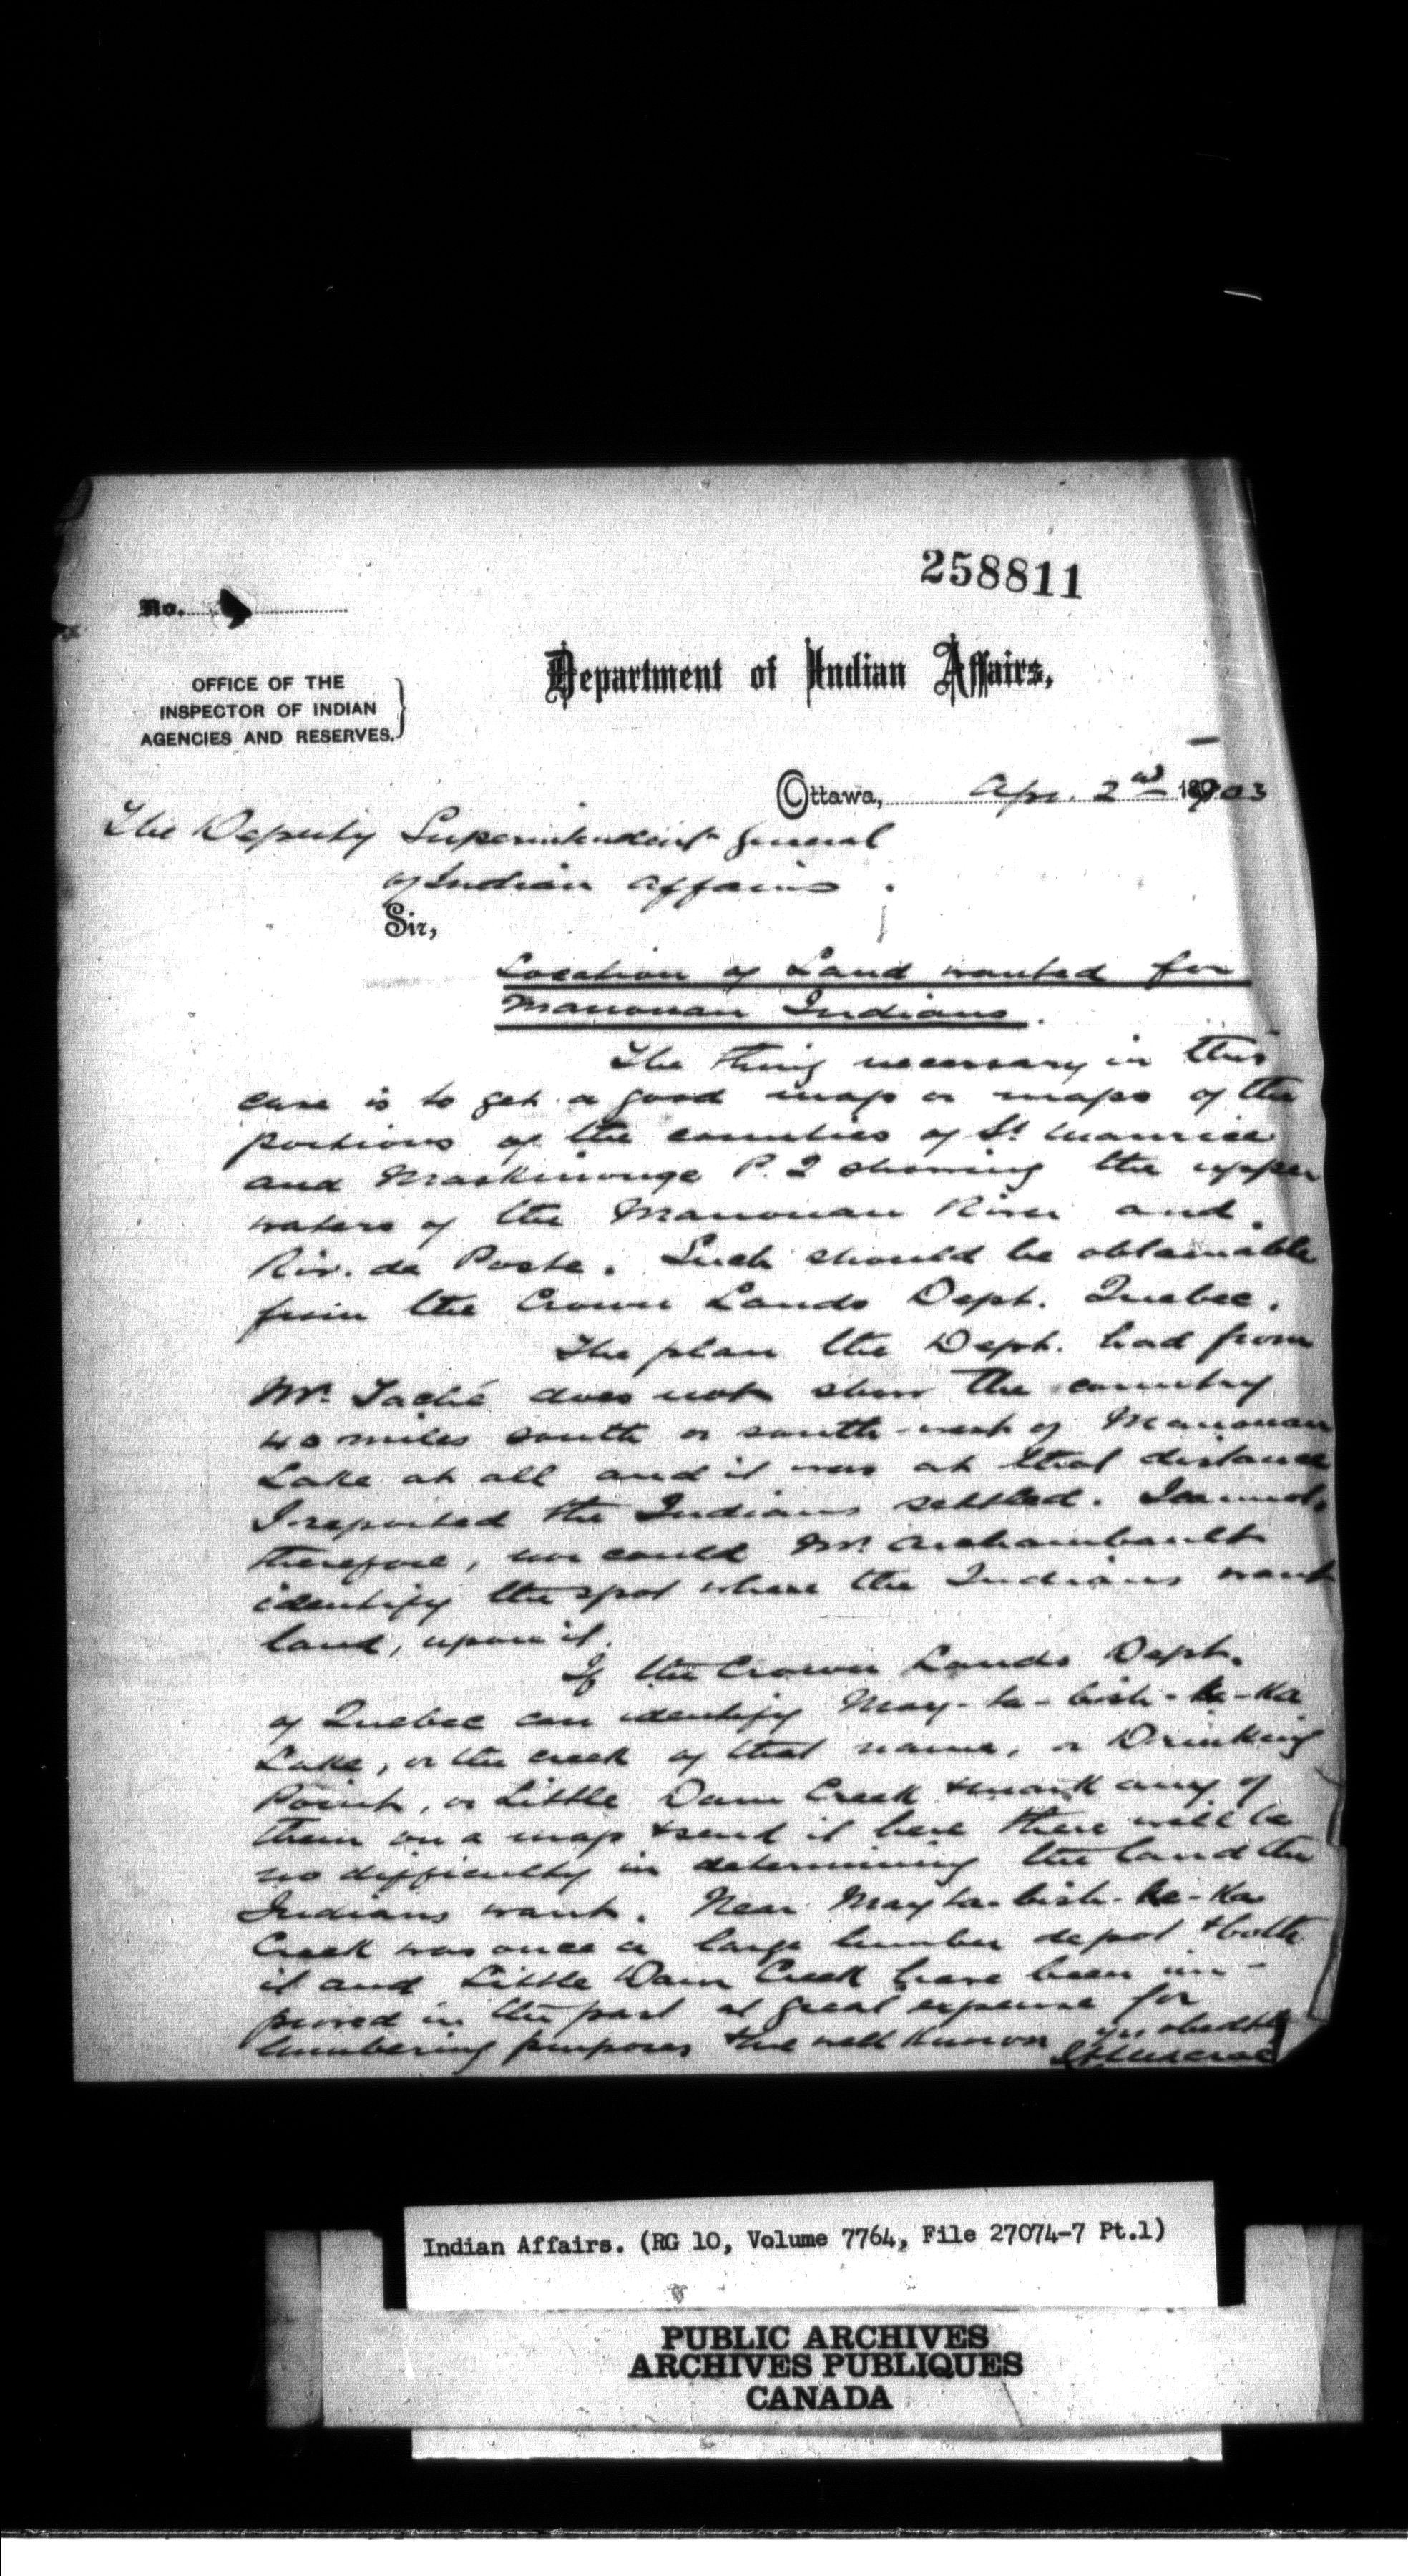 258811
No.
OFFICE OF THE
INSPECTOR OF INDIAN
AGENCIES AND RESERVES.
Department of Indian Affairs,
Ottawa, Apr. 2nd 1903
The Deputy Superintendent General
of Indian Affairs.
Sir,
Location of Land wanted for
Manouan Indians.
The thing necessary in this
case is to get a good map or maps of the
portions of the counties of St. Maurice
and Maskinonge P.Q showing the upper
waters of the Manouan River and
Riv. de Poste. Such should be obtainable
from the Crown Lands Dept. Quebec.
The plan the Dept. had from
Mr. Taché does not show the country
40 miles south or south-west of Manouan
Lake at all and it was at that distance
I reported the Indians settled. I cannot,
therefore, nor could Mr. Archambault
identify the spot where the Indians want
land, upon it.
If the Crown Lands Dept.
of Quebec can identify May-ta-bish-ke-ka
Lake, or the creek of that name, or Drinking
Point, or Little Dam Creek & mark any of
them on a map & send it here there will be
no difficulty in determining the land the
Indians want. Near May ta-bish-ke-ka
Creek was once a large lumber depot & both
it and Little Dam Creek have been im-
proved in the past at great expense for
lumbering purposes & are well known
yr. obedt.
Indian Affairs. (RG 10, Volume 7764, File 27074-7 Pt.1)
PUBLIC ARCHIVES
ARCHIVES PUBLIQUES
CANADA